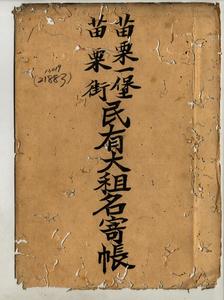 苗栗一堡
苗栗街
民有大租名寄帳
21883)